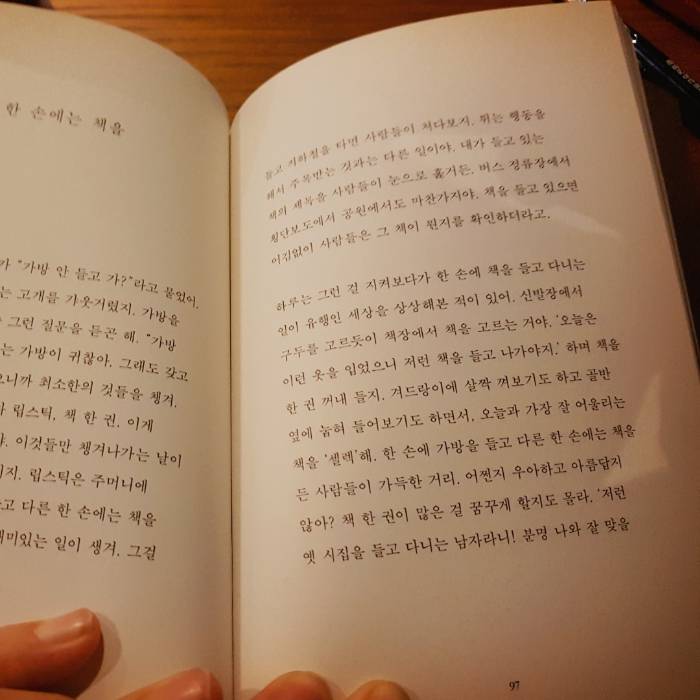 한 손에는 책을
가 “가방 안 들고 가?”라고 물었어.
는 고개를 갸웃거렸지. 가방을
그런 질문을 듣곤 해. “가방
는 가방이 귀찮아. 그래도 갖고
으니까 최소한의 것들을 챙겨.
립스틱, 책 한 권. 이게
야. 이것들만 챙겨나가는 날이
지. 립스틱은 주머니에
고 다른 한 손에는 책을
재미있는 일이 생겨. 그걸
들고 지하철을 타면 사람들이 쳐다보지. 튀는 행동을
해서 주목받는 것과는 다른 일이야. 내가 들고 있는
책의 제목을 사람들이 눈으로 훑거든. 버스 정류장에서
횡단보도에서 공원에서도 마찬가지야. 책을 들고 있으면
어김없이 사람들은 그 책이 뭔지를 확인하더라고.
하루는 그런 걸 지켜보다가 한 손에 책을 들고 다니는
일이 유행인 세상을 상상해본 적이 있어. 신발장에서
구두를 고르듯이 책장에서 책을 고르는 거야. ‘오늘은
이런 옷을 입었으니 저런 책을 들고 나가야지.’ 하며 책을
한 권 꺼내 들지. 겨드랑이에 살짝 껴보기도 하고 골반
옆에 눕혀 들어보기도 하면서, 오늘과 가장 잘 어울리는
책을 ‘셀렉’해. 한 손에 가방을 들고 다른 한 손에는 책을
든 사람들이 가득한 거리. 어쩐지 우아하고 아름답지
않아? 책 한 권이 많은 걸 꿈꾸게 할지도 몰라. ‘저런
옛 시집을 들고 다니는 남자라니! 분명 나와 잘 맞을
97